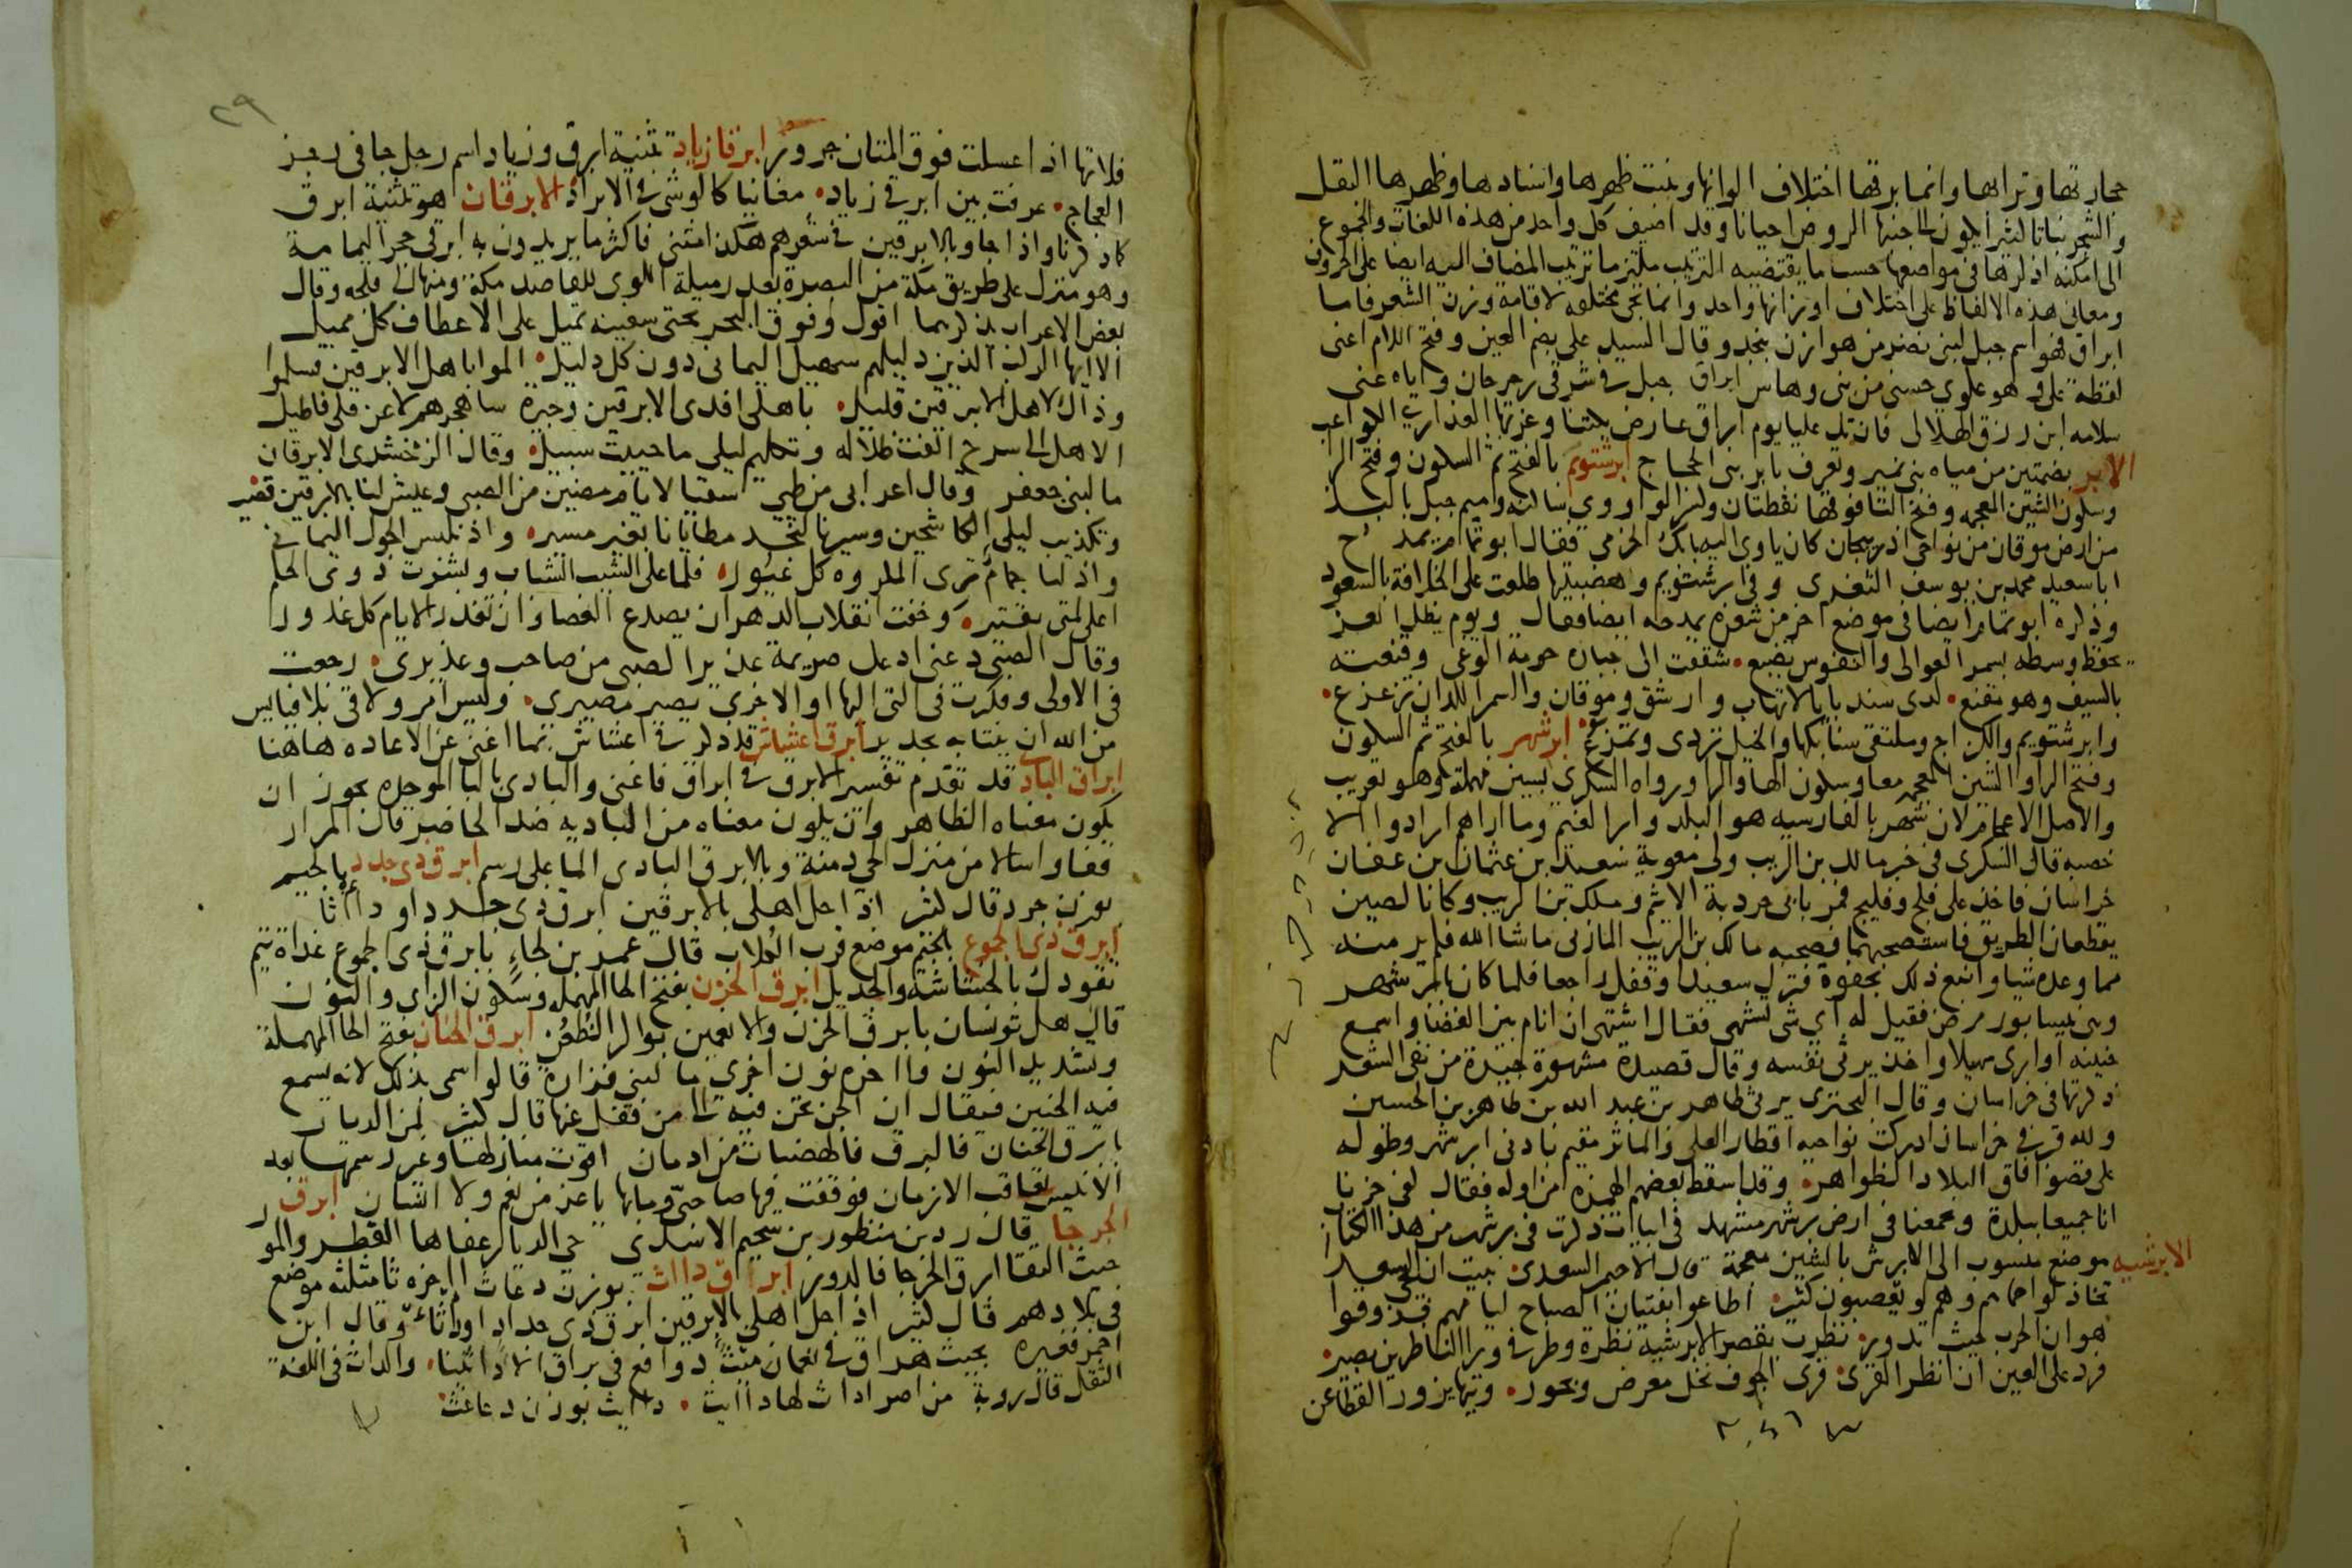 حجارتها وترابها وانما برقها اختلاف الوانها وينبت ظهرها واسنادها وظهرها البقل
والشجر نباتا كثيرا يكون الى جنبها الروض احيانا وقد اضيف كل واحد من هذه اللغات والجموع
الى امكنة اذكرها في مواضعها حسب ما يقتضيه الترتيب ملتزما ترتيب المضاف اليه ايضا على الحروف
ومعاني هذه الالفاظ على اختلاف اوزانها واحد وانما تجي مختلفة لاقامة وزن الشعر فاما
ابراق فهو اسم جبل لبني نصر من هوازن بنجد وقال السيد علي بضم العين وفتح اللام اعني
لفظة علي وهو علوي حسني من بني وهاس ابراق جبل في شرقي رحرحان واياه عنى
سلامه ابن رزق الهلالي فان تك عليا يوم ابراق عارض بكتنا وعزتها العذاري الكواعب
الابر بضمتين من مياه بني نمير وتعرف بابر بني الحجاج ابرشتويم بالفتح ثم السكون وفتح الرا
وسكون الشين المعجمه وفتح التا فوقها نقطتان وكسر الواو وي ساكنه وميم جبل بالبذ
من ارض موقان من نواحي اذربيجان كان ياوي اليه بابك الخرمي فقال ابو تمام يمدح
ابا سعيد محمد بن يوسف الثغري وفي ابرشتويم وهضبتيها طلعت على الخلافة بالسعود
وذكره ابو تمام ايضا في موضع اخر من شعره يمدحه ايضا فقال ويوم يظل العز
يحفظ وسطه بسمر العوالي والنفوس تضيع شققت الى جباره حومة الوغى وقنعته
بالسيف وهو مقنع لدى سندبايا لاتهاب وارشق وموقان والسمر اللدان تزعزع
وابرشتويم والكذاج وملتقى سنابكها والخيل تردى وتمزع ابرشهر بالفتح ثم السكون
وفتح الرا والشين المعجمه معا وسكون الها والرا ورواه السكري بسين مهملة وهو تعريب
والاصل الاعجام لان شهر بالفارسيه هو البلد وابر الغيم وما اراهم ارادوا الا
خصبه قال السكري في خبر مالك بن الريب ولى معوية سعيد بن عثمان بن عفان
خراسان فاخذ على فلج وفليج فمر بابي حردبة الاثيم ومالك بن الريب وكانا لصين
يقطعان الطريق فاستصحبهما فصحبه مالك بن الريب المازني ماشا الله فلم ير منه
مما وعده شيا واتبع ذلك بجفوة فترك سعيدا وقفل راجعا فلما كان بابرشهر
وهي نيسابور مرض فقيل له اي شي تشتهي فقال اشتهي ان انام بين الغضا واسمع
حنينه او ارى سهيلا واخذ يرثي نفسه وقال قصيدة مشهورة جيدة من نقي الشعر
ذكرتها في خراسان وقال البحتري يرثي طاهر بن عبد الله بن طاهر بن الحسين
ولله قبر في خراسان ادركت نواحيه اقطار العلى والماثر مقيم بادنى ابرشهر وطوله
على قصو افاق البلاد الظواهر وقد اسقط بعضهم الهمزه من اوله فقال كفى حزنا
انا جميعا ببلدة ويجمعنا في ارض برشهر مشهد في ابيات ذكرت في برشهر من هذا الكتاب
الابرشيه موضع منسوب الى الابرش بالشين معجمة قال الاحيمر السعدي نبيت ان الحي سعدا
تخاذلوا حماهم وهم لو يعصبون كثير اطاعوا لفتيان الصباح ليامهم فذوقوا
هوان الحرب حيث تدور نظرت بقصر الابرشية نظرة وطرفي ورا الناظرين بصير
فرد على العين ان انظر القرى قرى الجوف نخل معرض وبحور وتيها يزور القطا عن
٢٩
فلاتها اذا عسلت فوق المتان حرور ابرقا زياد تثنية ابرق وزياد اسم رجل جا في رجز
العجاج عرفت بين ابرقي زياد مغانيا كالوشي في الابراد الابرقان هو تثنية ابرق
كما ذكرنا واذا جاوا بالابرقين في شعرهم هكذا مثنى فاكثر ما يريدون به ابرقي حجر اليمامة
وهو منزل على طريق مكة من البصرة بعد رميلة اللوى للقاصد مكة ومنها الى فلجه وقال
بعض الاعراب يذكرهما اقول وفوق البحر نحتى سفينه تميل على الاعطاف كل مميل
الا ايها الركب الذين دليلهم سهيل اليماني دون كل دليل الموا باهل الابرقين فسلموا
وذاك لاهل الابرقين قليل باهلي افدى الابرقين وجيرة ساهجرهم لا عن قلى فاطيل
الا هل الى سرح الفت ظلاله وتكليم ليلى ما حييت سبيل وقال الزمخشري الابرقان
ما لبني جعفر وقال اعرابي من طي سقيا لايام مضين من الصبى وعيش لنا بالابرقين قصير
وتكذيب ليلى الكاشحين وسيرنا لنجد مطايانا بغير مسير واذ نلبس الحول اليماني
واذ لنا حمام ترى المكروه كل غيور فلما علا الشيب الشباب وبشرت ذوي الحلم
اعلى لمتي بقتير وخفت انقلاب الدهر ان يصدع العصا وان تغدر الايام كل غدور
وقال الصبى دعني ادعك صريمة عذير الصبى من صاحب وعذيري رجعت
في الاولى وفكرت في التي اليها او الاخرى يصير مصيري وليس امرو لاقى بلا فيايس
من الله ان ينتابه بجدير ابرق اعشاش قد ذكر في اعشاش بما اغنى عن الاعاده هاهنا
ابراق الباد قد تقدم تفسير الابرق في ابراق فاغنى والبادي بالبا الموحده يجوز ان
يكون معناه الظاهر وان يكون معناه من الباديه ضد الحاضر قال المرار
قفا واسالا من منزل الحي دمنة وبالابرق البادي الما على رسم ابرق ذي جدد بالجيم
بوزن جرد قال كثير اذا حل اهلي بالابرقين ابرق ذي جدد او دااثا
ابرق ذي الجموع بالجيم موضع قرب الكلاب قال عمر بن لجاء بابرق ذي الجموع غداة تيم
تقودك بالخشاشة والجديل ابرق الحزن بفتح الحا المهمله وسكون الزاي والنون
قال هل تونسان بابرق الحزن والانعمين بواكر الظعن ابرق الحنان بفتح الحا المهملة
وتشديد النون واخره نون اخرى ما لبني فزارة قالوا سمي بذلك لانه يسمع
فيه الحنين فيقال ان الجن تحن فيه الى من قفل عنها قال كثير لمن الديار
بابرق الحنان فالبرق فالهضبات من ادمان اقوت منازلها وغير رسمها بعد
الانيس تعاقب الازمان فوقفت فيها صاحبي وما بها ياعز من نعم ولا انسان ابرق
الخرجا قال زر بن منظور بن سحيم الاسدي حي الديار عفاها القطر والمور
حيث التقا ابرق الخرجا فالدور ابراق دااث بوزن دعاث اخره ثا مثلثه موضع
في بلادهم قال كثير اذا حل اهلي بالابرقين ابرق ذي جدد او دااثا وقال ابن
احمر فغيره بحيث هراق في نعمان ميث دوافع في براق الادائينا والداث في اللغة
الثقل قال روبة من اصر اداث لها دااث دااث بوزن دعاعث